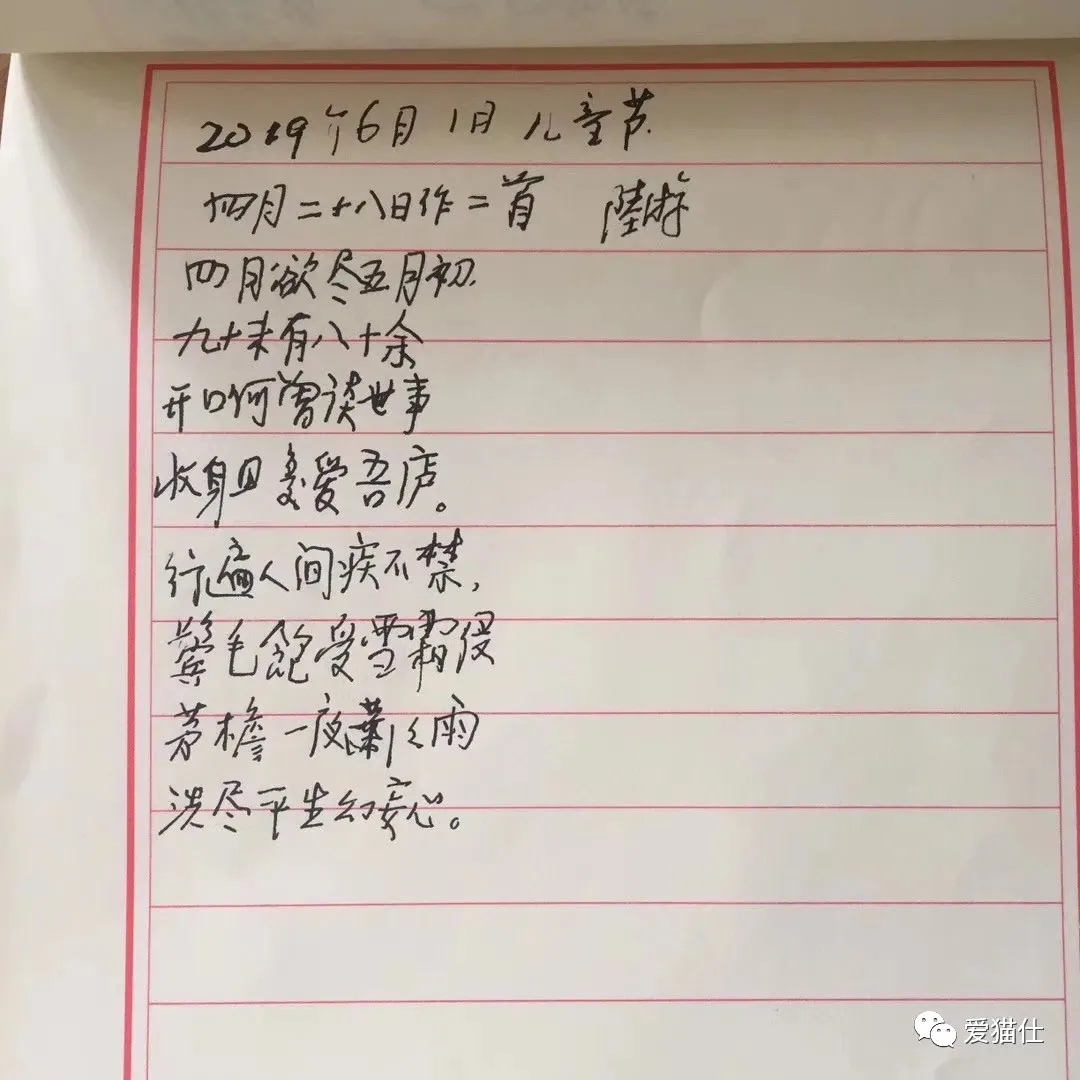 2019年6月1日儿童节.
四月二十八日作二首 陸游
四月欲尽五月初.
九十未有八十余
开口何曾谈世事
收身且爱吾庐。
行遍人间疾不禁,
鬓毛饱受雪霜侵
茅檐一夜萧々雨
洗尽平生幻妄心。
爱猫仕